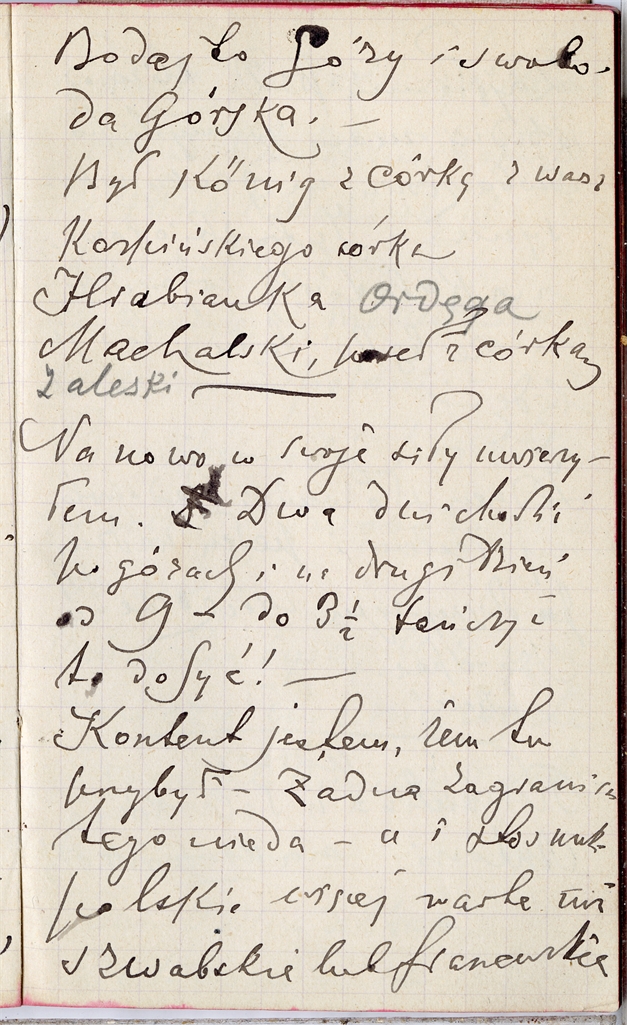 Bodajto Góry i swobo-
da Górska. —
Był König z córką z
Karpińskiego córka
Hrabianka Ordęga
Machalski, poseł z córką
Zaleski
Na nowo w swoje siły uwierzy-
łem. Dwa dni chodzić
po górach i na drugi dzień
od 9 – do 3 1/2 tańczyć
to dosyć! —
Kontent jestem, żem tu
przybył – Żadna zagranica
tego nieda – a i stosunk.
polskie więcej warte niż
szwabskie lub francuskie